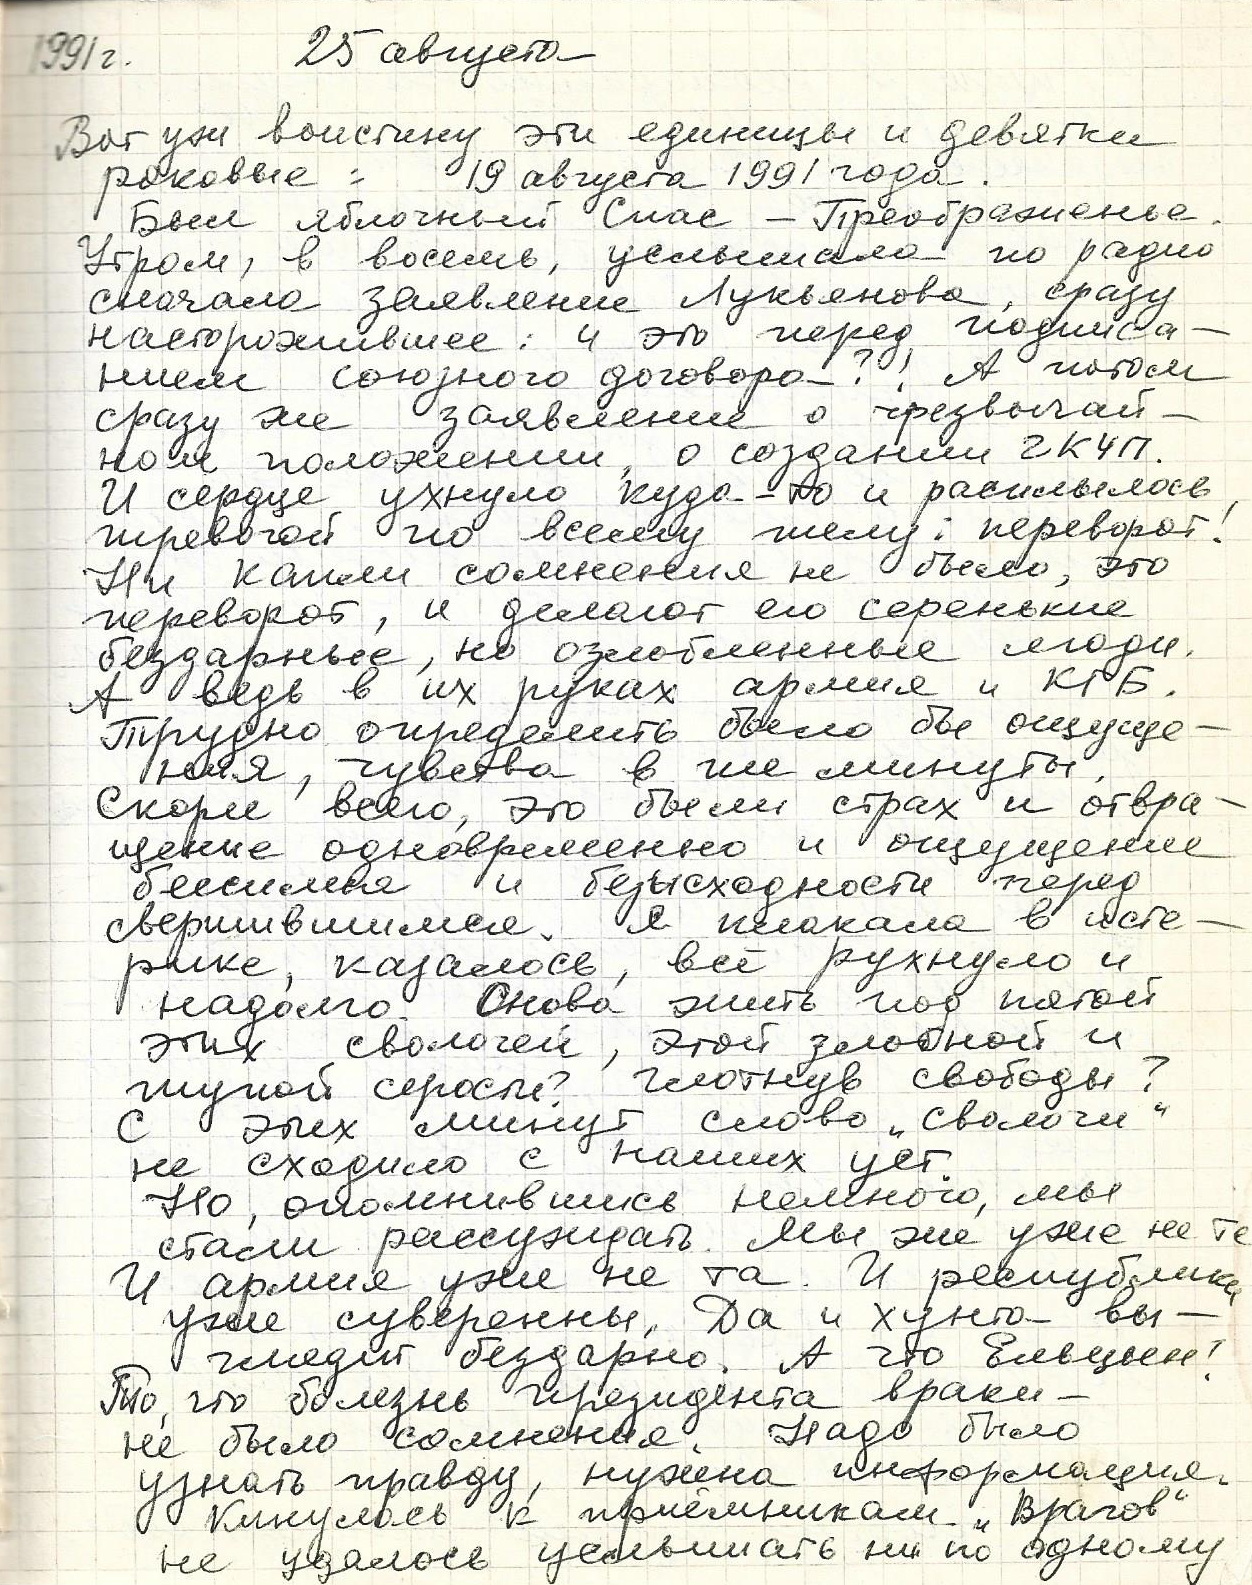 1991 г. 25 августа
Вот уж воистину эти единицы и девятки
роковые: 19 августа 1991 года.
Был яблочный Спас – Преображенье.
Утром, в восемь, услышала по радио
сначала заявление Лукьянова, сразу
насторожившее: и это перед подписа-
нием союзного договора?! А потом
сразу же заявление о чрезвычай-
ном положении, о создании ГКЧП.
И сердце ухнуло куда-то и расплылось
тревогой по всему телу: переворот!
Ни капли сомнения не было, это
переворот, и делают его серенькие
бездарные, но озлобленные люди.
А ведь в их руках армия и КГБ.
Трудно определить было бы ощуще-
ния, чувства в те минуты.
Скорее всего, это были страх и отвра-
щение одновременно и ощущение
бессилия и безысходности перед
свершившимся. Я плакала в исте-
рике, казалось, всё рухнуло и
надолго. Снова жить под пятой
этих сволочей, этой злобной и
тупой серости? Глотнув свободы?
С этих минут слово „сволочи“
не сходило с наших уст.
Но, опомнившись немного, мы
стали рассуждать. Мы же уже не те
И армия уже не та. И республики
уже суверенны. Да и хунта вы-
глядит бездарно. А что Ельцын!
То, что болезнь президента враки –
не было сомнения. Надо было
узнать правду, нужна информация.
Кинулась к приёмникам. „Врагов“
не удалось услышать ни по одному